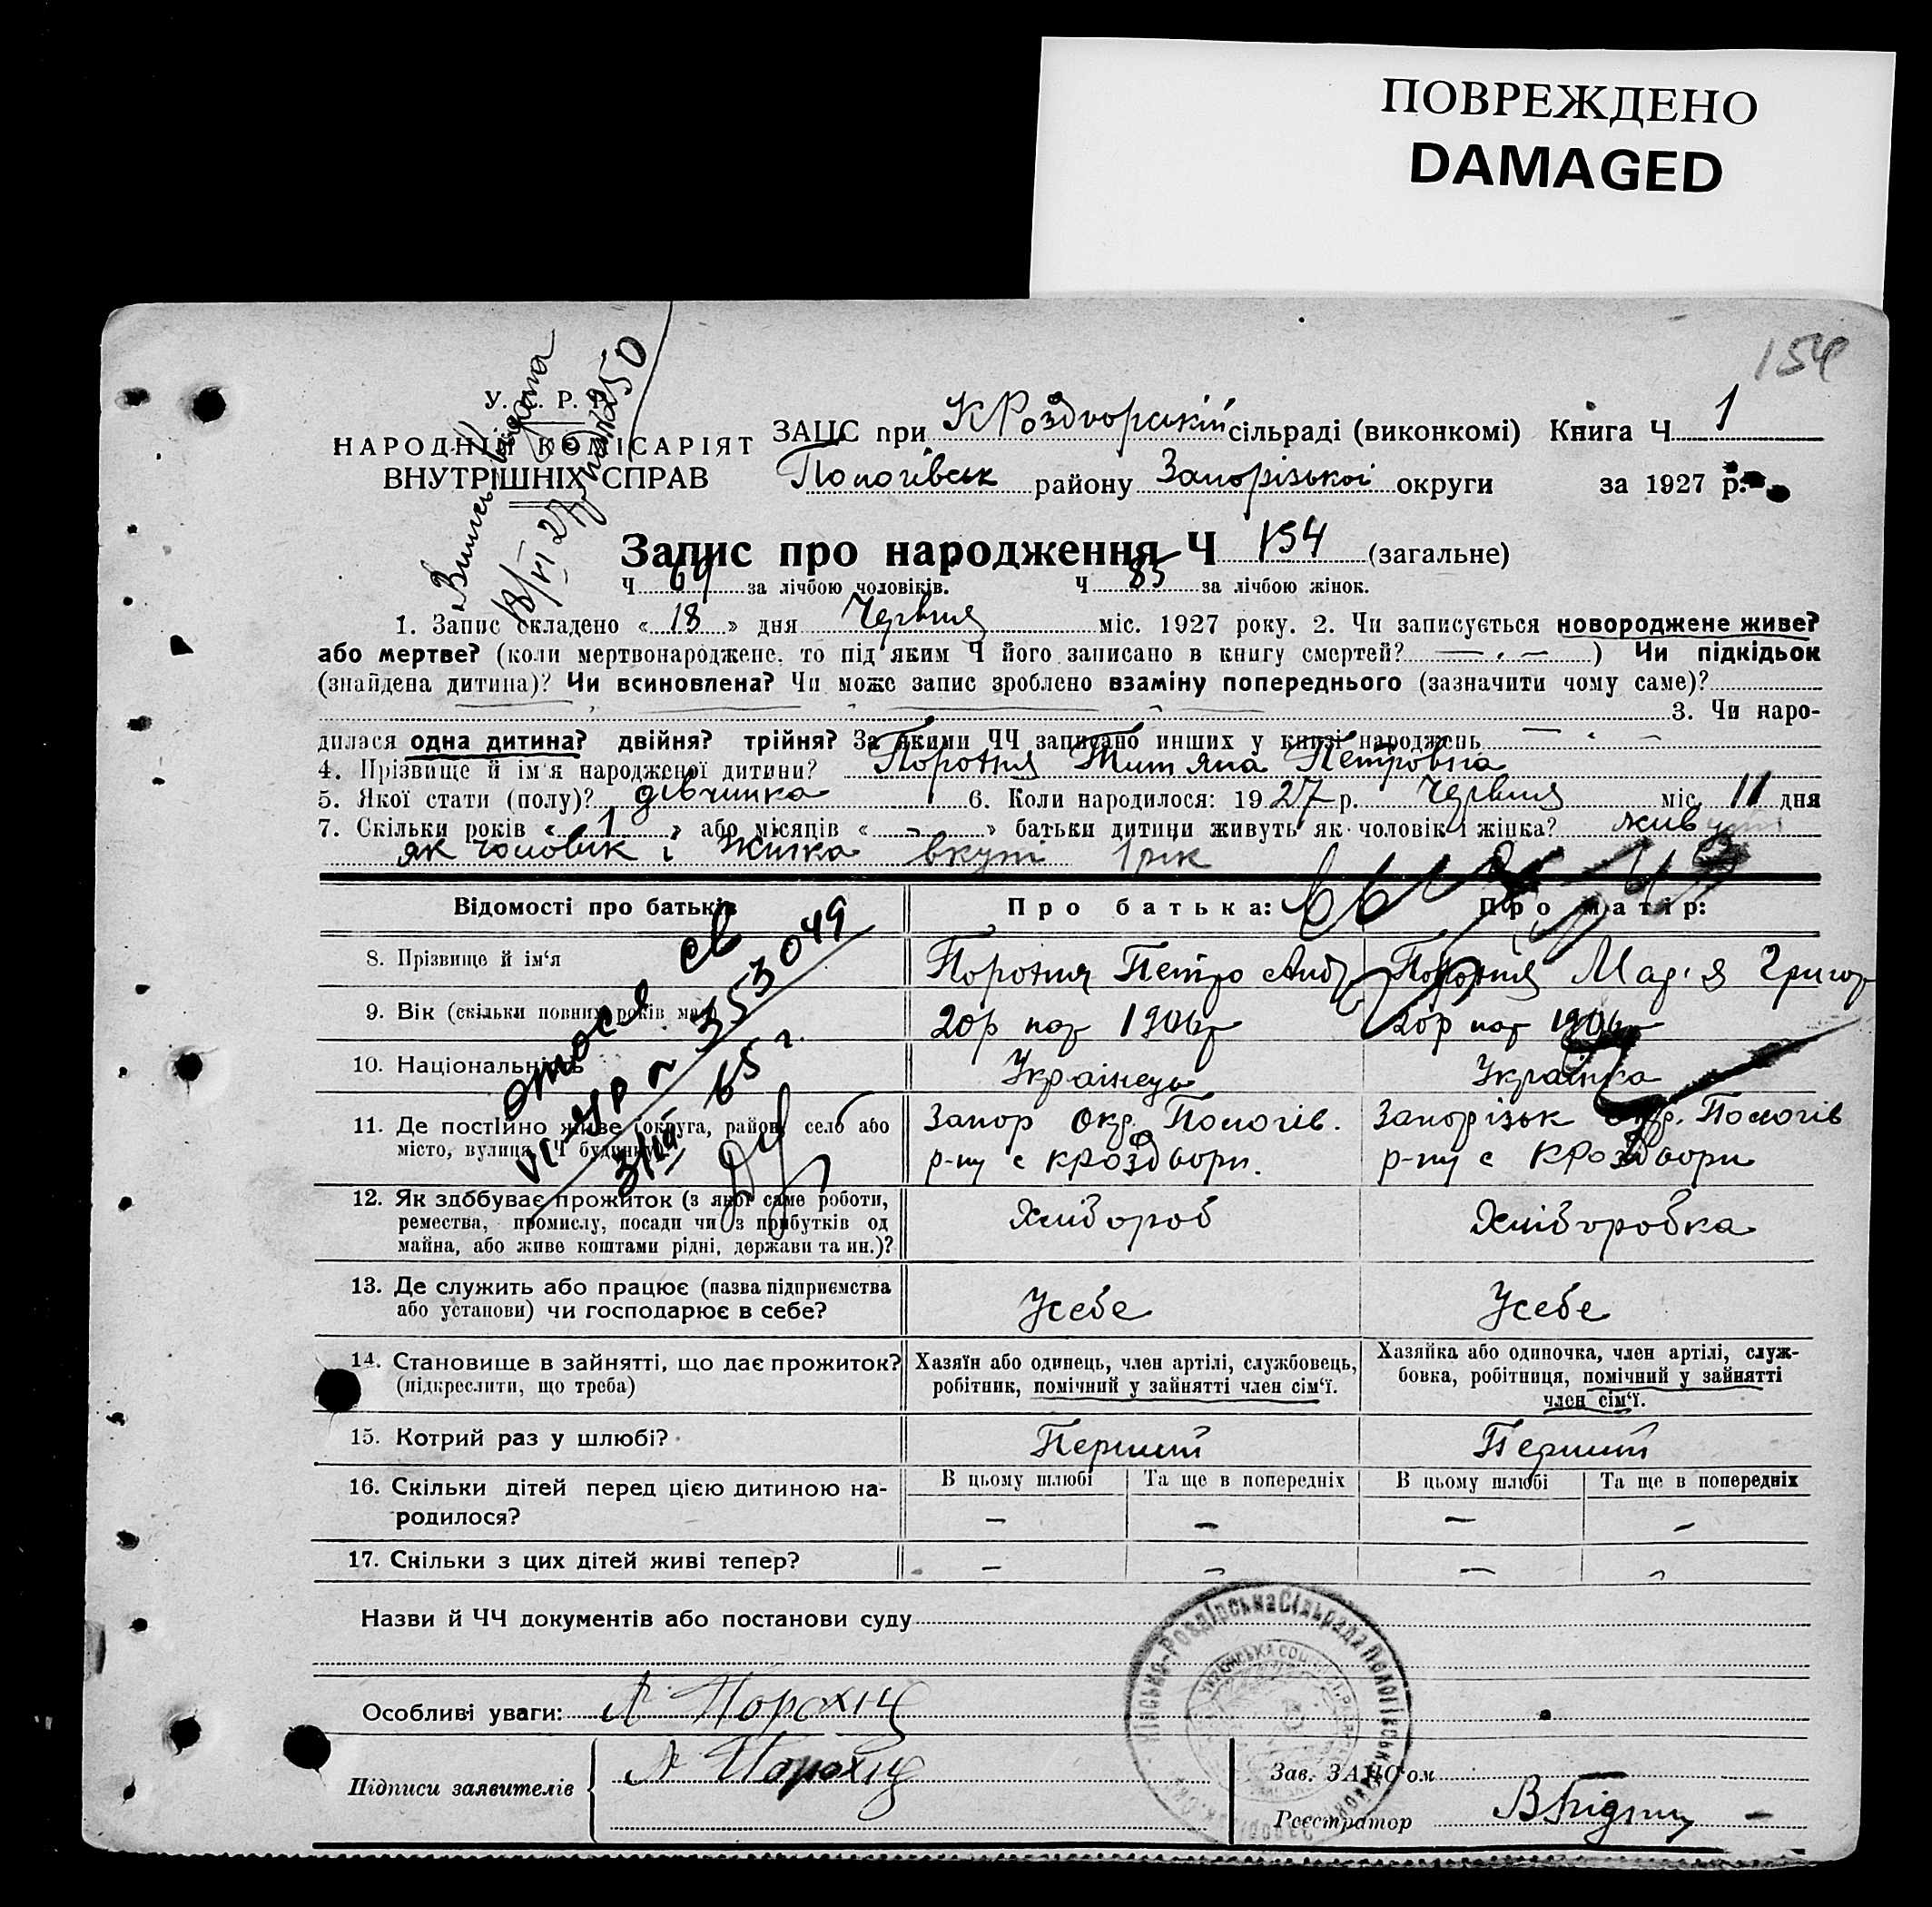 ПОВРЕЖДЕНО
DAMAGED
154
У. С. Р. Р.
НАРОДНІЙ КОМІСАРІЯТ
ВНУТРІШНІХ СПРАВ
ЗАЦС при К Роздворській сільраді (виконкомі) Книга Ч 1
Пологівськ району Запорізької округи за 1927 р.
Запис про народження Ч 154 (загальне)
Ч 69 за лічбою чоловіків. Ч 85 за лічбою жінок.
1. Запис складено « 18 » дня Червня міс. 1927 року. 2. Чи записується новороджене живе?
або мертве? (коли мертвонароджене, то під яким Ч його записано в книгу смертей? — ) Чи підкідьок
(знайдена дитина)? Чи всиновлена? Чи може запис зроблено взаміну попереднього (зазначити чому саме)?
3. Чи наро-
дилася одна дитина? двійня? трійня? За якими ЧЧ записано инших у книзі народжень —
4. Прізвище й ім'я народженої дитини? Порохня Титяна Петровна
5. Якої стати (полу)? дівчинка 6. Коли народилося: 1927 р. Червня міс. 11 дня
7. Скільки років « 1 » або місяців « - » батьки дитини живуть як чоловік і жінка? живуть
як чоловік і жинка вкупі 1 рік
Відомості про батьків Про батька: Про матір:
8. Прізвище й ім'я Порохня Петро Анд Порохня Марія Григор
9. Вік (скільки повних років має) 20р 1906р 20р 1906р
10. Національність Украінець Украінка
11. Де постійно живе (округа, район, село або Запор окр. Пологів. Запорізьк окр. Пологів
місто, вулиця, Ч будинку)? р-ну с КРоздвори. р-ну с КРоздвори
12. Як здобуває прожиток (з якої саме роботи, Хлібороб Хліборобка
ремества, промислу, посади чи з прибутків од
майна, або живе коштами рідні, держави та ин.)?
13. Де служить або працює (назва підприємства Усебе Усебе
або установи) чи господарює в себе?
14. Становище в зайнятті, що дає прожиток? Хазяїн або одинець, член артілі, службовець, Хазяйка або одиночка, член артілі, служ-
(підкреслити, що треба) робітник, помічний у зайнятті член сім'ї. бовка, робітниця, помічний у зайнятті
член сім'ї.
15. Котрий раз у шлюбі? Перший Перший
В цьому шлюбі Та ще в попередніх В цьому шлюбі Та ще в попередніх
16. Скільки дітей перед цією дитиною на- — — — —
родилося?
17. Скільки з цих дітей живі тепер? — — — —
Назви й ЧЧ документів або постанови суду
Особливі уваги: Порохня
Підписи заявителів Порохня
Зав. ЗАЦС'ом
Реєстратор